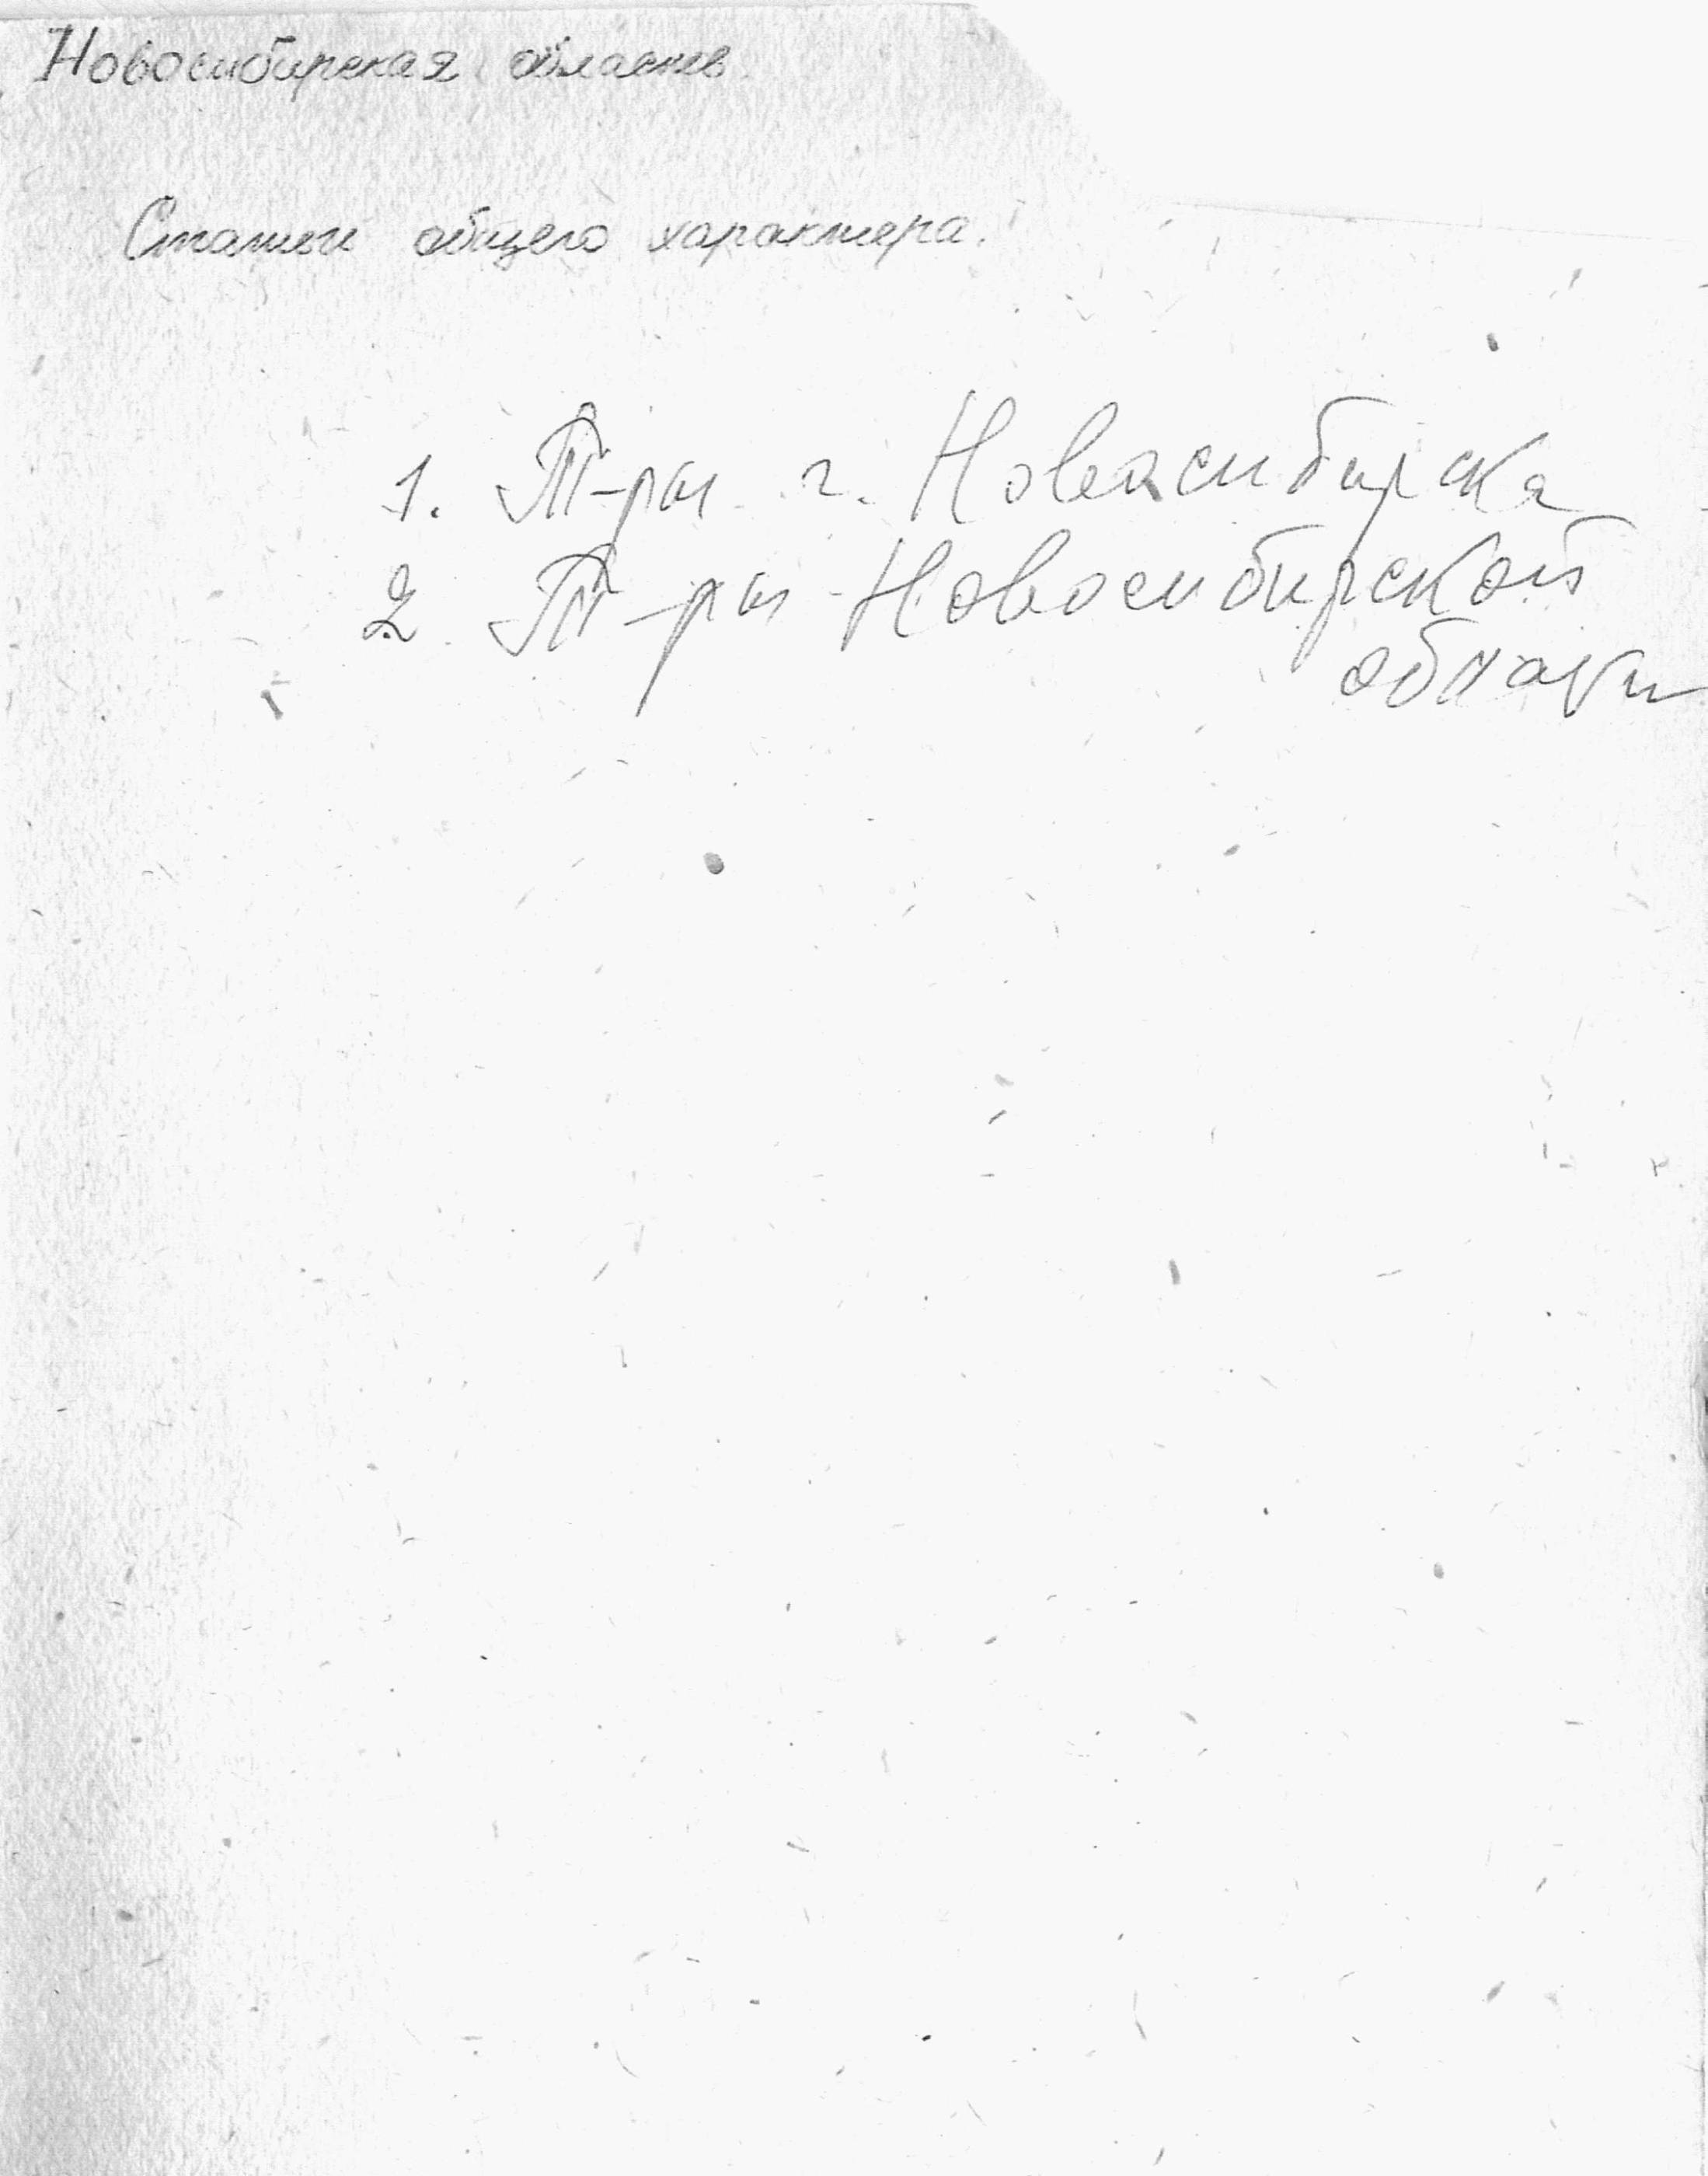 Новосибирская область
Статьи общего характера.
1. Т-ры г. Новосибирска
2. Т-ры Новосибирской
области